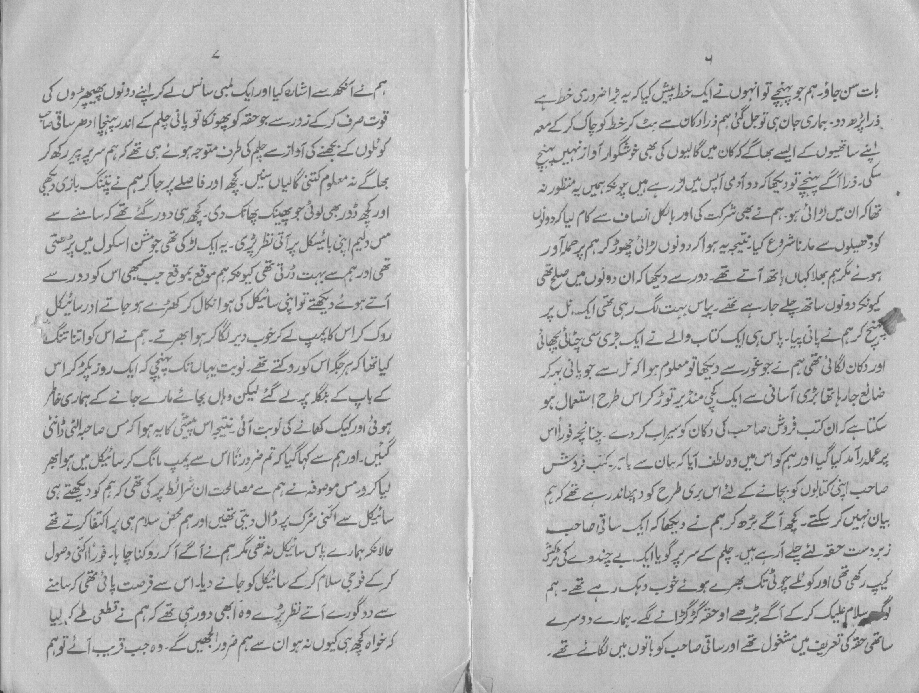 ۶
بات سن جاؤ۔ ہم جو پہنچے تو انہوں نے ایک خط پیش کیا کہ یہ بڑا ضروری خط ہے
ذرا پڑھ دو۔ ہماری جان ہی تو جل گئی ہم ذرا دکان سے ہٹ کر خط کو چاک کر کے معہ
اپنے ساتھیوں کے ایسے بھاگے کہ کان میں گالیوں کی بھی خوشگوار آواز نہیں پہنچ
سکی۔ ذرا آگے پہنچے تو دیکھا کہ دو آدمی آپس میں لڑ رہے ہیں چونکہ ہمیں یہ منظور نہ
تھا کہ ان میں لڑائی ہو۔ ہم نے بھی شرکت کی اور بالکل انصاف سے کام لیا کہ دونوں
کو ڈھیلوں سے مارنا شروع کیا نتیجہ یہ ہوا کہ دونوں لڑائی چھوڑ کر ہم پر حملہ آور
ہوئے مگر ہم بھلا کہاں ہاتھ آتے تھے۔ دور سے دیکھا کہ ان دونوں میں صلح تھی
کیونکہ دونوں ساتھ چلے جا رہے تھے۔ پیاس بہت لگ رہی تھی ایک نل پر
پہنچ کر ہم نے پانی پیا۔ پاس ہی ایک کتاب والے نے ایک بڑی سی چٹائی بچھائی
اور دکان لگائی تھی ہم نے جو غور سے دیکھا تو معلوم ہوا کہ نل سے جو پانی بہہ کر
ضائع جا رہا تھا بڑی آسانی سے ایک کچی منڈیر توڑ کر اس طرح استعمال ہو
سکتا ہے کہ ان کتب فروش صاحب کی دکان کو سیراب کر دے۔ چنانچہ فوراً اس
پر عملدرآمد کیا گیا اور ہم کو اس میں وہ لطف آیا کہ بیان سے باہر۔ کتب فروش
صاحب اپنی کتابوں کو بچانے کے لئے اس بری طرح کود پھاند رہے تھے کہ ہم
بیان نہیں کر سکتے۔ کچھ آگے بڑھ کر ہم نے دیکھا کہ ایک ساقی صاحب
زبردست حقہ لئے چلے آ رہے ہیں۔ چلم کے سر پر گویا ایک بے پھندنے کی ٹرکش
کیپ رکھی تھی اور کوئلے چوٹی تک بھرے ہوئے خوب دہک رہے تھے۔ ہم
سلام علیک کر کے آگے بڑھے اور حقہ گڑگڑانے لگے۔ ہمارے دوسرے
ساتھی حقہ کی تعریف میں مشغول تھے اور ساقی صاحب کو باتوں میں لگائے تھے۔
۷
ہم نے آنکھ سے اشارہ کیا اور ایک لمبی سانس لے کر اپنے دونوں پھیپھڑوں کی
قوت صرف کر کے زور سے جو حقہ کو پھونکا تو پانی چلم کے اندر پہنچا ادھر ساقی صاحب
کوئلوں کے بجھنے کی آواز سے چلم کی طرف متوجہ ہوئے ہی تھے کہ ہم سر پر پیر رکھ کر
بھاگے نہ معلوم کتنی گالیاں سنیں۔ کچھ اور فاصلے پر جا کر ہم نے پتنگ بازی دیکھی
اور کچھ ڈور بھی لوٹی جو پھینک پھانک دی۔ کچھ ہی دور گئے تھے کہ سامنے سے
مس ولیم اپنی بائیسکل پر آتی نظر پڑی۔ یہ ایک لڑکی تھی جو مشن اسکول میں پڑھتی
تھی اور ہم سے بہت ڈرتی تھی کیونکہ ہم موقع بموقع جب کبھی اس کو دور سے
آتے ہوئے دیکھتے تو اپنی سائیکل کی ہوا نکال کر کھڑے ہو جاتے اور سائیکل
روک کر اس کا پمپ لے کر خوب دیر لگا کر ہوا بھرتے۔ ہم نے اس کو اتنا تنگ
کیا تھا کہ ہر جگہ اس کو روکتے تھے۔ نوبت یہاں تک پہنچی کہ ایک روز پکڑ کر اس
کے باپ کے بنگلہ پر لے گئے لیکن وہاں بجائے مارے جانے کے ہماری خاطر
ہوئی اور کیک کھانے کی نوبت آئی۔ نتیجہ اس پیشی کا یہ ہوا کہ مس صاحبہ الٹی ڈانٹی
گئیں۔ اور ہم سے کہا گیا کہ تم ضرورتاً اس سے پمپ مانگ کر سائیکل میں ہوا بھر
لیا کرو۔ مس موصوفہ نے ہم سے مصالحت ان شرائط پر کی تھی کہ ہم کو دیکھتے ہی
سائیکل سے اکنی سڑک پر ڈال دیتی تھیں اور ہم محض سلام ہی پر اکتفا کرتے تھے
حالانکہ ہمارے پاس سائیکل نہ تھی مگر ہم نے آگے آ کر روکنا چاہا۔ فوراً اکنی وصول
کر کے فوجی سلام کر کے سائیکل کو جانے دیا۔ اس سے فرصت پائی تھی کہ سامنے
سے دو گورے آتے نظر پڑے وہ ابھی دور ہی تھے کہ ہم نے قطعی طے کر لیا
کہ خواہ کچھ ہی کیوں نہ ہو ان سے ہم ضرور الجھیں گے۔ وہ جب قریب آئے تو ہم